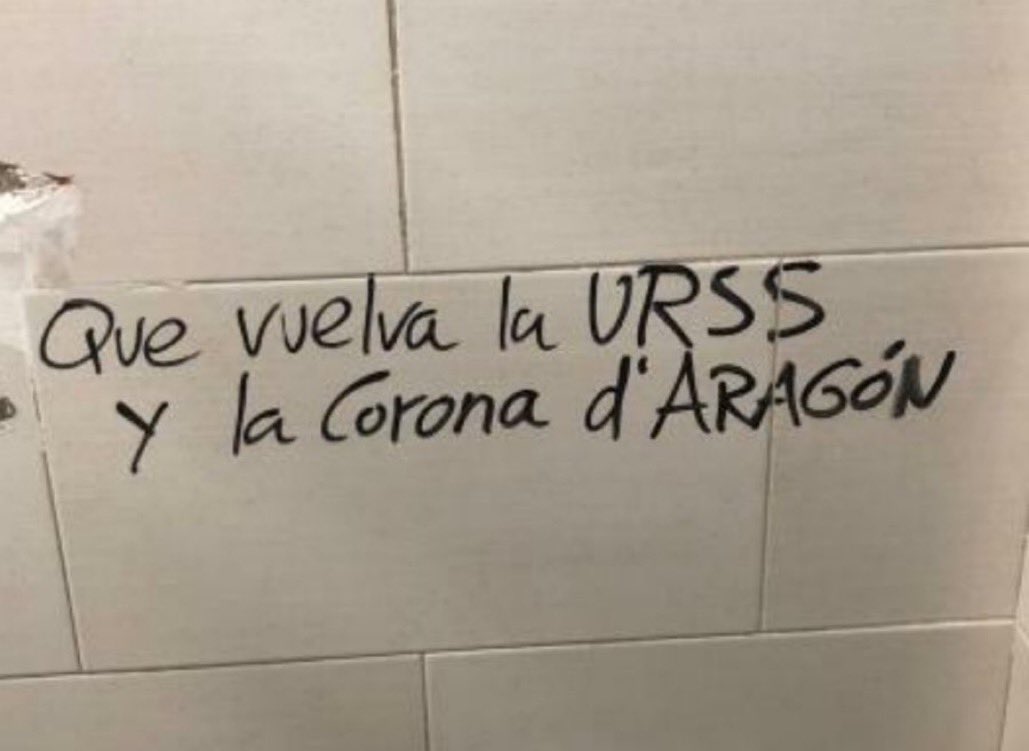 Que vuelva la URSS
y la Corona d'ARAGÓN